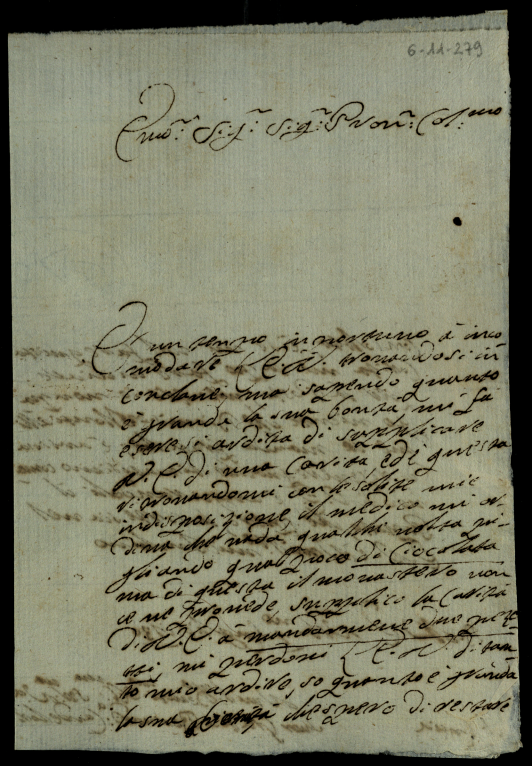 6-11-279
Emo: Sig: Sig: Pron: Col:mo
È un tempo inportuno à inco
modare V. E. trouandosi in
conclaue ma sapendo quanto
è grande la sua bontà, mi fa
esere si ardita di supplicare
V. E. di una carità ed è questa
ritrouandomi con le solite mie
indisposizione, il medico mi or
dina che uada qualche uolta pi
gliando qual poco di Ciocolata
ma di questa il monastero non
ce ne prouede, supplico la Carità
di V. E. à mandarmene due pez
zi, mi perdoni V. E. di tan
to mio ardire, so quanto è grande
la sua bontà che spero di restare